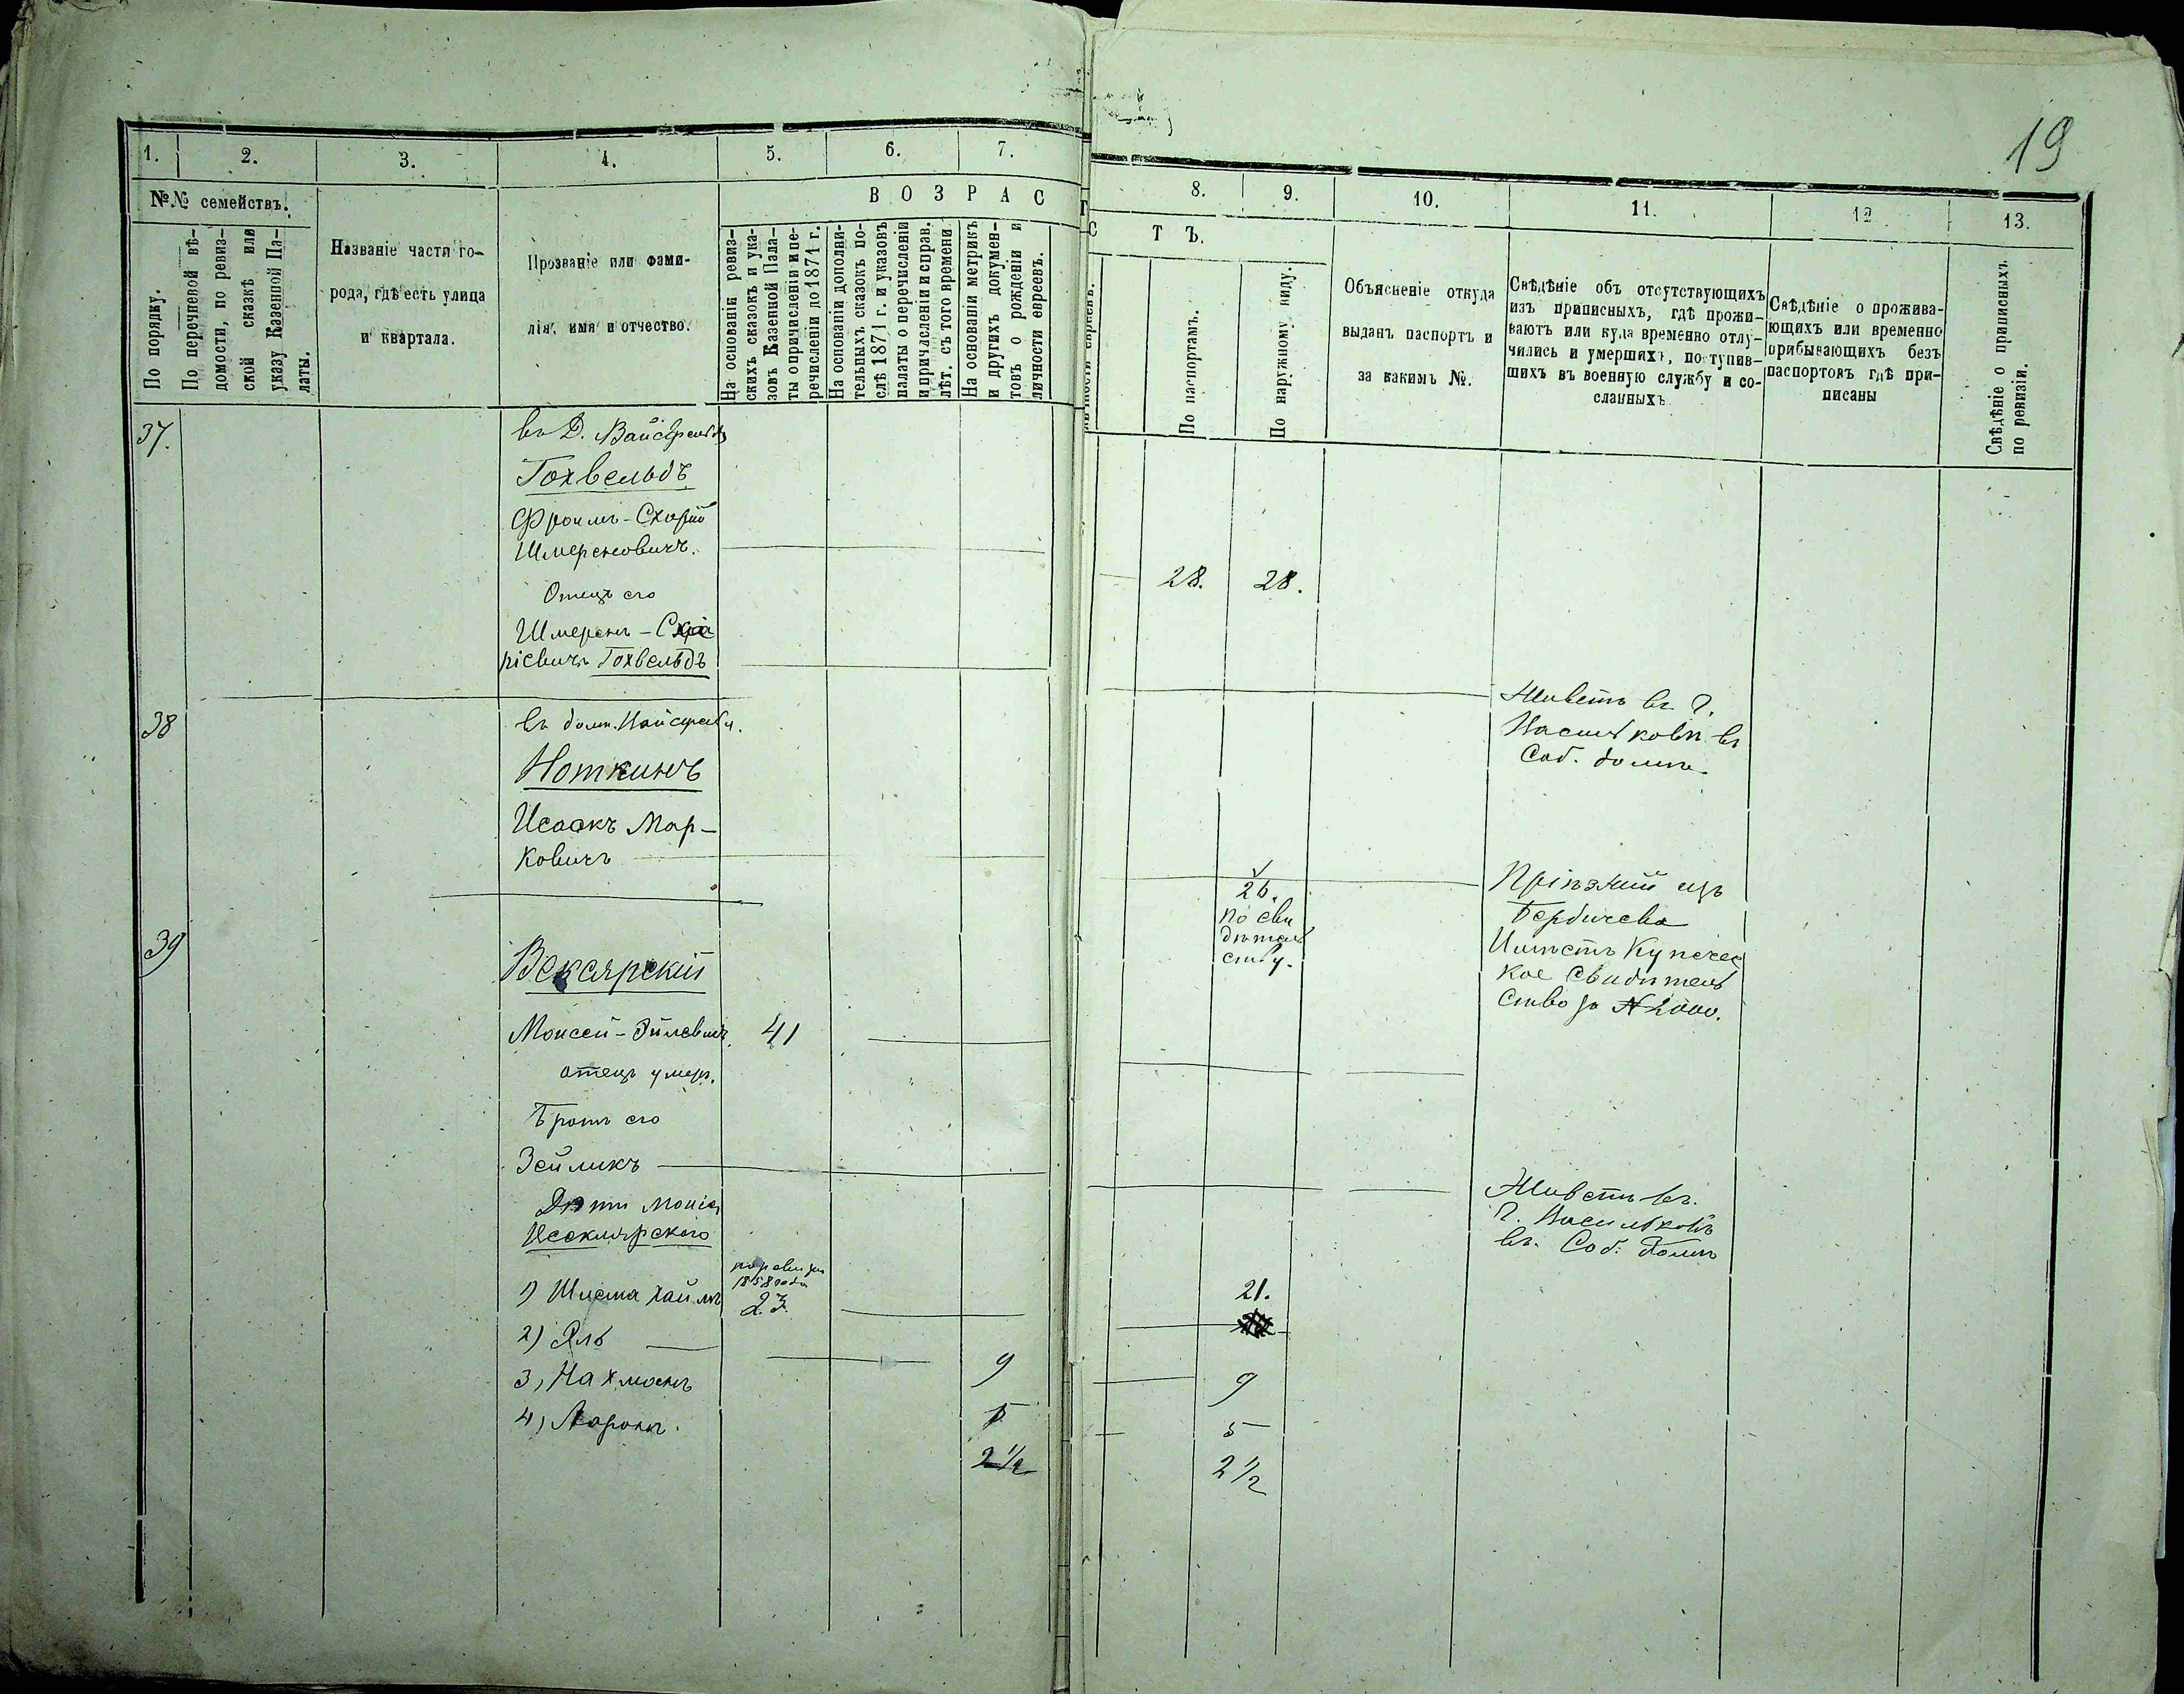 19
1.
2.
3.
4.
5.
6.
7.
8.
9.
10.
11.
12
13.
№№ семействъ.
По порядку.
По перечневой вѣ-
домости, по ревиз-
ской сказкѣ или
указу Казенной Па-
латы.
Названіе части го-
рода, гдѣ есть улица
и квартала.
Прозваніе или фами-
лія, имя и отчество.
ВОЗРАС
На основаніи ревиз-
скихъ сказокъ и ука-
зовъ Казенной Пала-
ты о причисленіи и пе-
речисленіи до 1871 г.
На основаніи дополни-
тельныхъ сказокъ по-
слѣ 1871 г. и указовъ
палаты о перечисленіи
и причисленіи и справ.
лѣт. съ того времени
На основаніи метрикъ
и другихъ докумен-
товъ о рожденіи и
личности евреевъ.
С ТЪ.
По паспортамъ.
По наружному виду.
Объясненіе откуда
выданъ паспортъ и
за какимъ №.
Свѣдѣніе объ отсутствующихъ
изъ приписныхъ, гдѣ прожи-
ваютъ или куда временно отлу-
чились и умершихъ, поступив-
шихъ въ военную службу и со-
сланныхъ
Свѣдѣніе о прожива-
ющихъ или временно
прибывающихъ безъ
паспортовъ гдѣ при-
писаны
Свѣдѣніе о приписныхъ
по ревизіи.
37.
въ Д.
Гохвельдъ
Фроимъ-
Шмереновичъ.
28.
28.
Отецъ его
Шмеренъ-
ріевичъ Гохвельдъ
Живетъ въ г.
въ
Соб. домѣ
38
въ дом.
Ноткинъ
Исаакъ Мар-
ковичъ
26.
по сви
дѣтель
ству.
Пріѣзжій изъ
Бердичева
Имѣетъ Купечес
кое Свидѣтель
ство за № 2000.
39
Моисей-
41
отецъ умеръ.
Братъ его
Зейликъ
Живетъ въ
г. Васильковѣ
въ Соб. Домѣ
Дѣти
по ревизіи
1858 года
1) Хаимъ
23.
21.
2)
9
9
3) Нахманъ
5
5
4) Ааронъ.
2 1/2
2 1/2